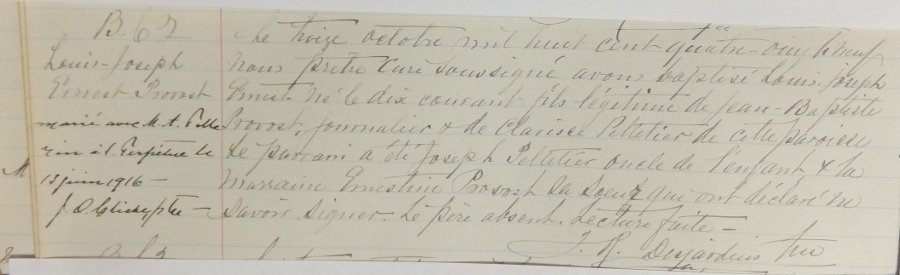 B. 62
Louis-Joseph
Ernest Provost
marié avec M. A.
à
13 juin 1916 -
J. D. ptre -
M
Le treize octobre mil huit cent quatre-vingt neuf
nous prêtre curé soussigné avons baptisé Louis-Joseph
Ernest né le dix courant fils légitime de Jean-Baptiste
Provost, journalier & de Clarisse Pelletier de cette paroisse
Le parrain a été Joseph Pelletier oncle de l'enfant & la
marraine Ernestine Provost sa soeur qui ont déclaré ne
savoir signer. Le père absent. Lecture faite -
J. R. Desjardins Ptre